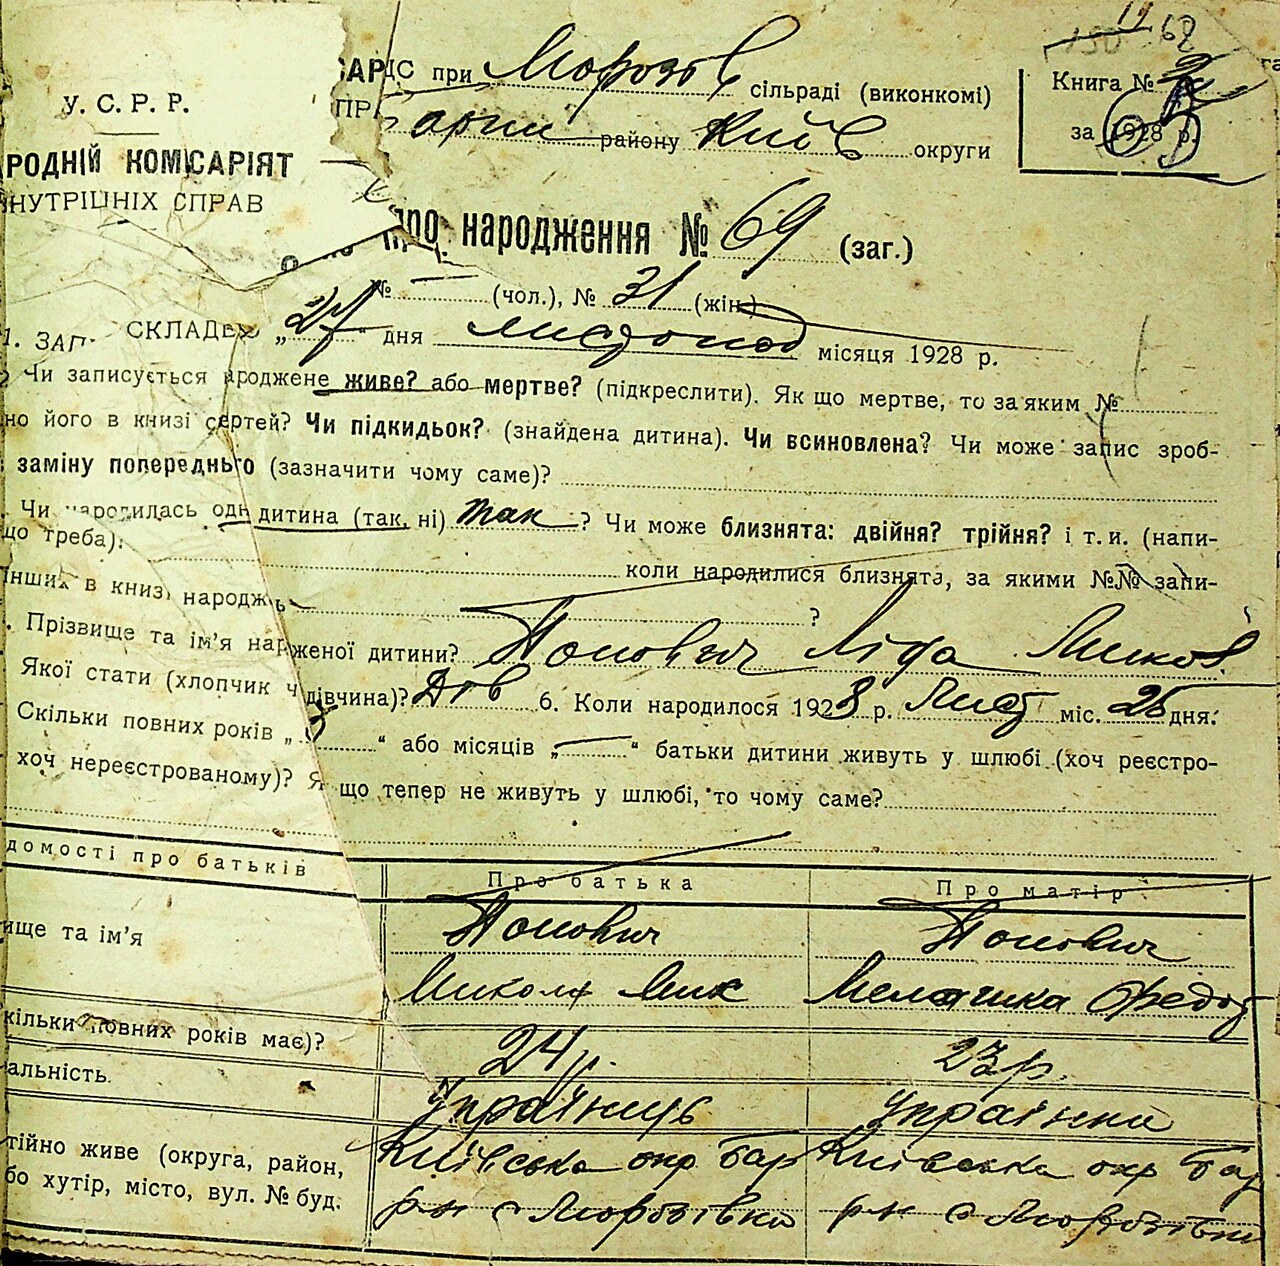 У. С. Р. Р.
РОДНІЙ КОМІСАРІЯТ
НУТРІШНІХ СПРАВ
при Морозів сільраді (виконкомі)
району Київ округи
Книга №
за 1928 р.
про народження № 69 (заг.)
№ — (чол.), № 31 (жін.)
1. ЗАП СКЛАДЕН „27“ дня листопад місяця 1928 р.
Чи записується народжене живе? або мертве? (підкреслити). Як що мертве, то за яким №
но його в книзі смертей? Чи підкидьок? (знайдена дитина). Чи всиновлена? Чи може запис зроб-
заміну попереднього (зазначити чому саме)?
Чи народилась одн дитина (так, ні) так ? Чи може близнята: двійня? трійня? і т. и. (напи-
що треба).
коли народилися близнята, за якими №№ запи-
інших в книзі народж ?
Прізвище та ім’я нар женої дитини? Попович Ліда Микол
Якої стати (хлопчик ч дівчина)? Дів 6. Коли народилося 1928 р. Лист міс. 25 дня.
Скільки повних років „3“ або місяців „—“ батьки дитини живуть у шлюбі (хоч реєстро-
хоч нереєстрованому)? Я що тепер не живуть у шлюбі, то чому саме?
домості про батьків Про батька Про матір
ище та ім’я Попович Попович
Микола Мик Меланика Федот
кільки повних років має)? 24 р. 23 р.
альність Українець Українка
тійно живе (округа, район, Київська окр Бар Київська окр Бар
бо хутір, місто, вул. № буд. р-н с Морозівка р-н с Морозівка